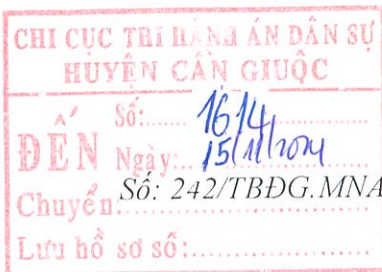 CHI CỤC THI HÀNH ÁN DÂN SỰ
HUYỆN CẦN GIUỘC
ĐẾN
Số:...... 1614
Ngày:.. 15/11/2024
Chuyển:
Số: 242/TBĐG.MNA
Lưu hồ sơ số: